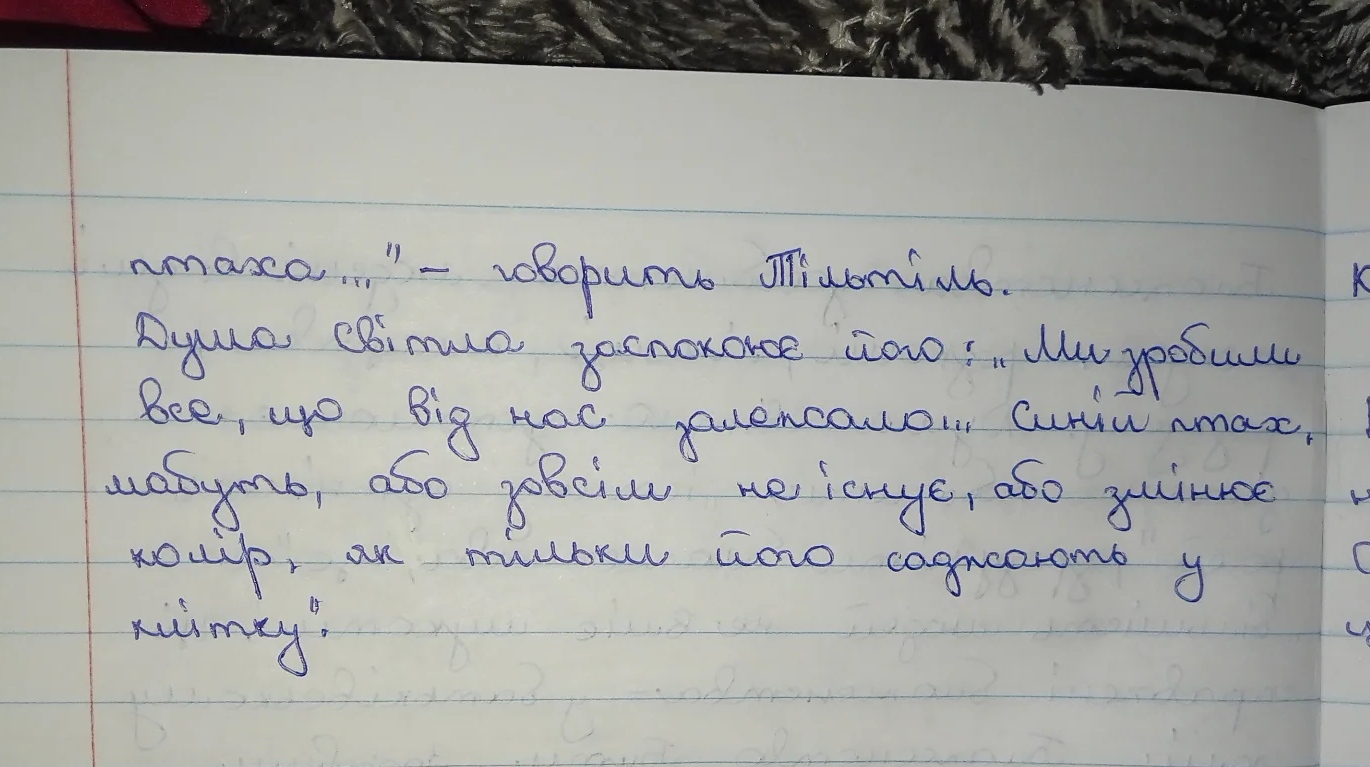 птаха..." – говорить Тільтіль.
Душа Світла заспокоює його: „Ми зробили
все, що від нас залежало... Синій птах,
мабуть, або зовсім не існує, або змінює
колір, як тільки його саджають у
клітку".